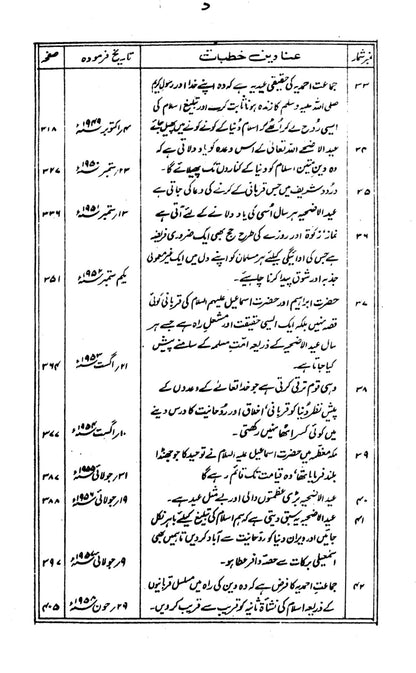 د
نمبر شمار عناوین خطبات تاریخ فرمودہ صفحہ
۳۳ جماعت احمدیہ کی حقیقی عید یہ ہے کہ وہ اپنے خدا اور رسول کریم
صلی اللہ علیہ وسلم کا زندہ ہونا ثابت کرے اور تبلیغ اسلام کی
ایسی رَو لے کر اُٹھے کہ اسلام دُنیا کے کونے کونے میں پھیل جائے ۴؍ اکتوبر ۱۹۴۹ء ۳۱۸
۳۴ عید الاضحیہ اللہ تعالیٰ کے اس وعدہ کو یاد دلاتی ہے کہ
وہ دینِ متین اسلام کو دنیا کے کناروں تک پھیلائے گا۔ ۲۳؍ ستمبر ۱۹۵۰ء ۳۲۷
۳۵ درود شریف میں جس قربانی کے کرنے کی دعا کی جاتی ہے
عید الاضحیہ ہر سال اُسی کی یاد دلانے کے لئے آتی ہے ۱۳؍ ستمبر ۱۹۵۱ء ۳۳۶
۳۶ نماز، زکوٰۃ اور روزے کی طرح حج بھی ایک ضروری فریضہ
ہے جس کی ادائیگی کیلئے ہر مسلمان کو اپنے دل میں ایک غیر معمولی
جذبہ اور شوق پیدا کرنا چاہیئے۔ یکم ستمبر ۱۹۵۲ء ۳۵۱
۳۷ حضرت ابراہیم اور حضرت اسماعیل علیہم السلام کی قربانی کوئی
قصہ نہیں بلکہ ایک ایسی حقیقت اور مشعلِ راہ ہے جسے ہر
سال عید الاضحیہ کے ذریعہ امتِ مسلمہ کے سامنے پیش
کیا جاتا ہے۔ ۲۱؍ اگست ۱۹۵۳ء ۳۶۴
۳۸ وہی قوم ترقی کرتی ہے جو خدا تعالےٰ کے وعدوں کے
پیش نظر دُنیا کو قربانی، اخلاق اور روحانیت کا درس دینے
میں کوئی کسر اٹھا نہیں رکھتی۔ ۱۰؍ اگست ۱۹۵۴ء ۳۷۷
۳۹ مکہ معظمہ میں حضرت اسماعیل علیہ السلام نے توحید کا جو جھنڈا
بلند فرمایا تھا وہ قیامت تک قائم رہے گا ۳۱؍ جولائی ۱۹۵۵ء ۳۸۷
۴۰ عید الاضحیہ بڑی عظمتوں والی اور بے مثل عید ہے۔ ۱۹؍ جولائی ۱۹۵۶ء ۳۸۸
۴۱ عید الاضحیہ یہ سبق دیتی ہے کہ ہم اسلام کی تبلیغ کیلئے باہر نکل
جائیں اور ویران دنیا کو روحانیت سے آباد کر دیں تا ہمیں بھی
اسمٰعیلی برکات سے حصہ وافر عطا ہو۔ ۹؍ جولائی ۱۹۵۷ء ۳۹۷
۴۲ جماعت احمدیہ کا فرض ہے کہ وہ دین کی راہ میں مسلسل قربانیوں
کے ذریعہ اسلام کی نشاۃ ثانیہ کو قریب سے قریب کر دیں۔ ۲۹؍ جون ۱۹۵۸ء ۴۰۵